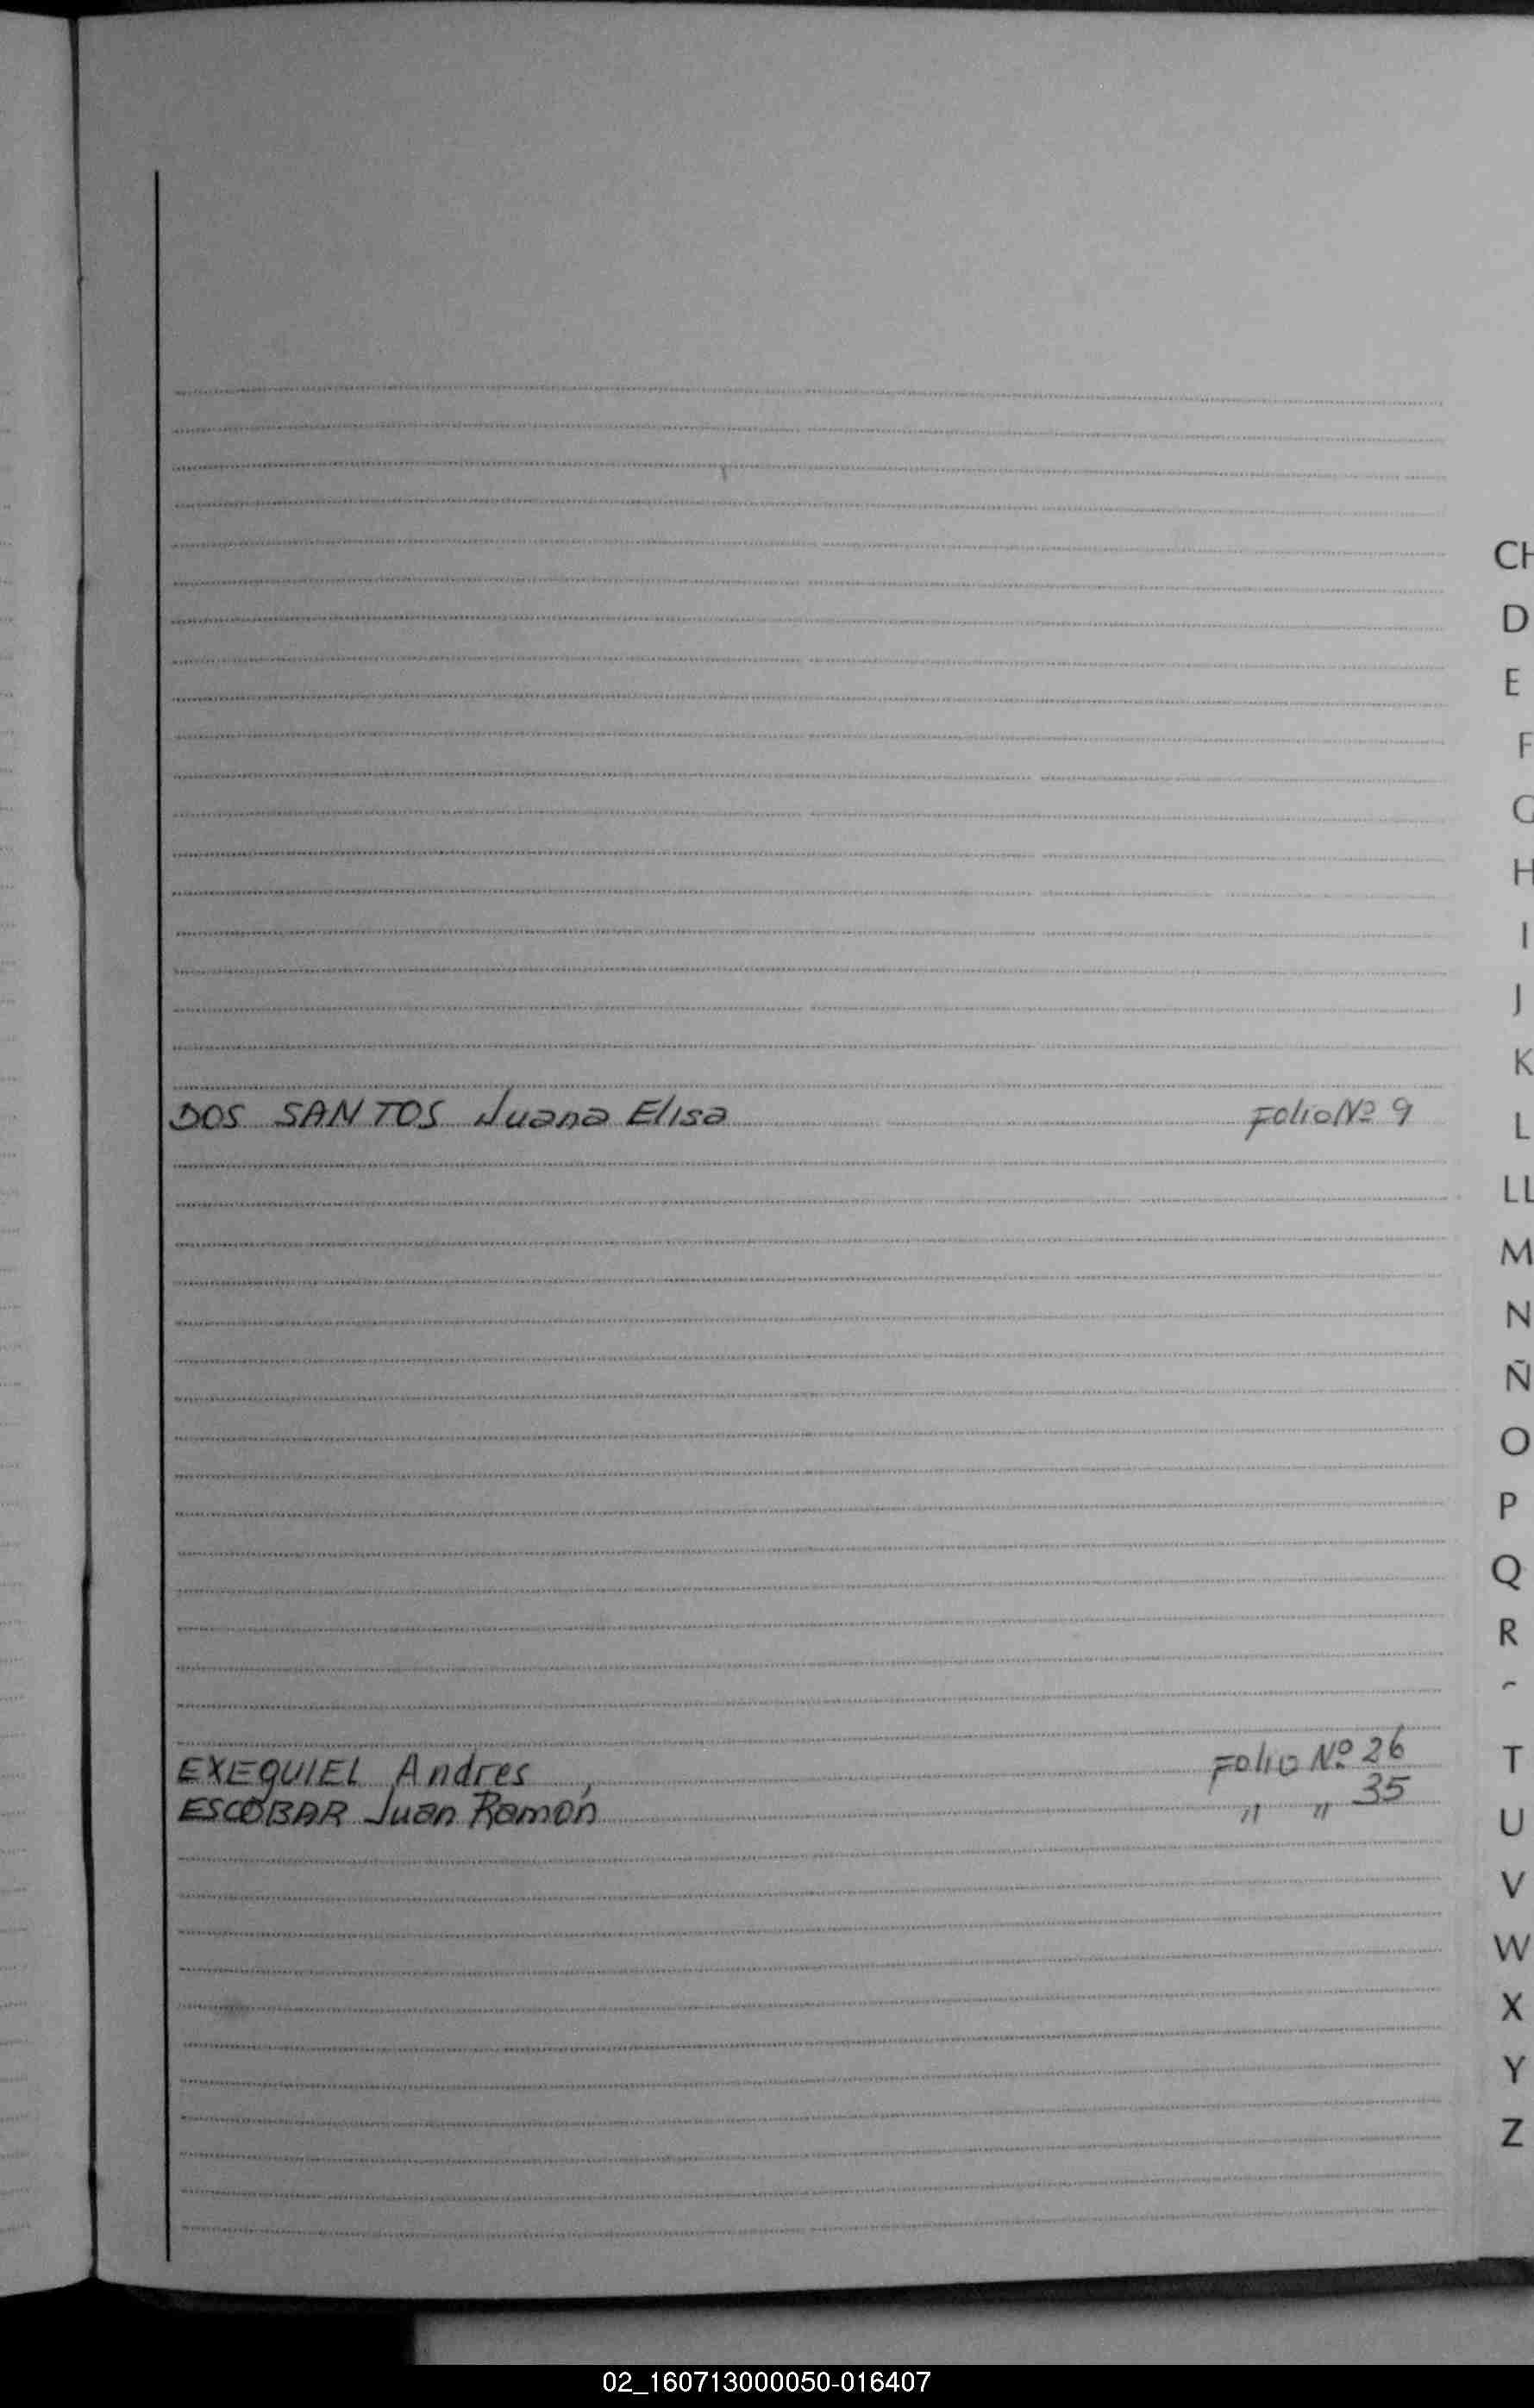 CH
D
E
F
G
H
I
J
K
DOS SANTOS Juana Elisa Folio Nº 9
L
LL
M
N
Ñ
O
P
Q
R
T
EXEQUIEL Andres Folio Nº 26
ESCOBAR Juan Ramón " " 35
U
V
W
X
Y
Z
02_160713000050-016407